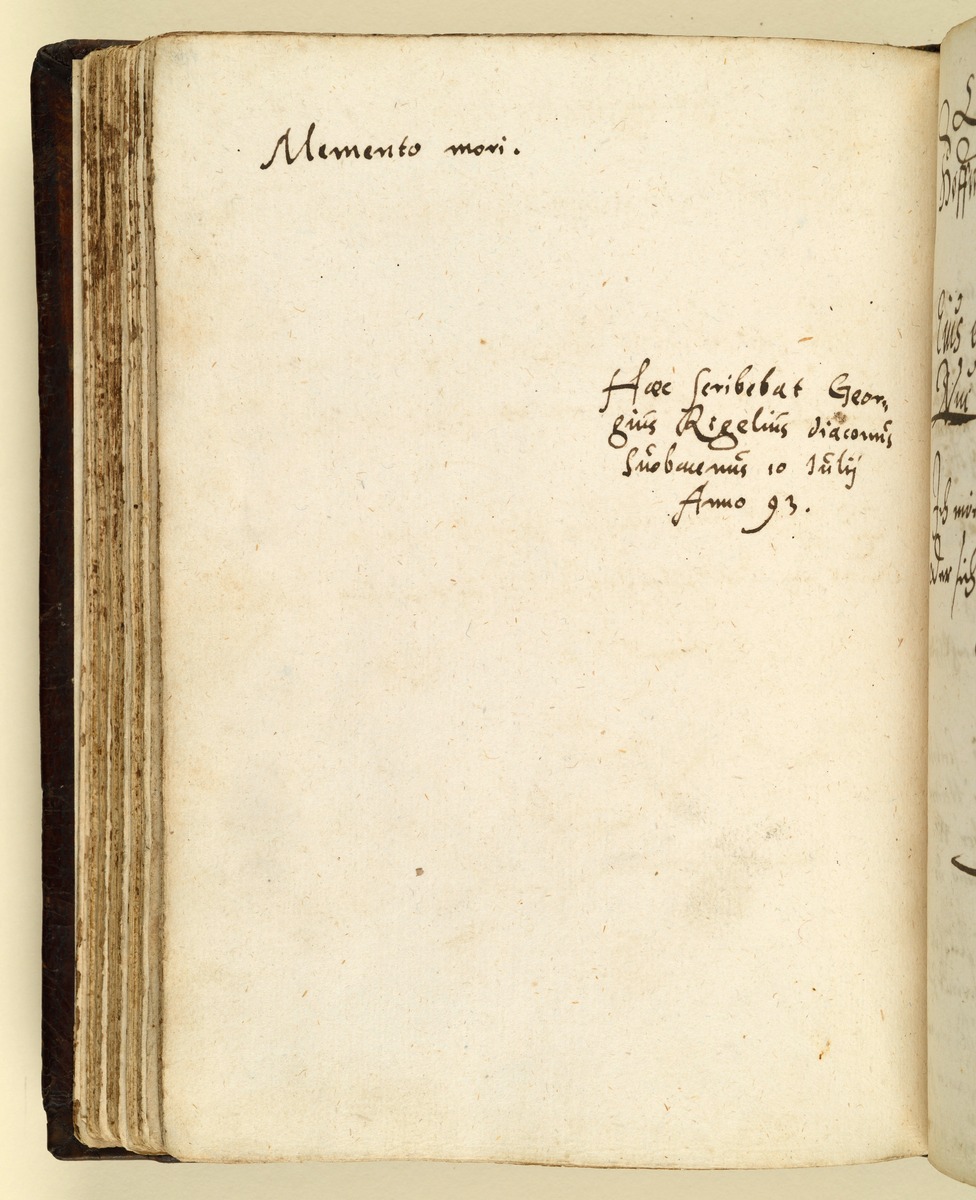 Memento mori.
Haec scribebat Geor-
gius Rigelius diaconus
Suobacenus 10 Iulij
Anno 93.